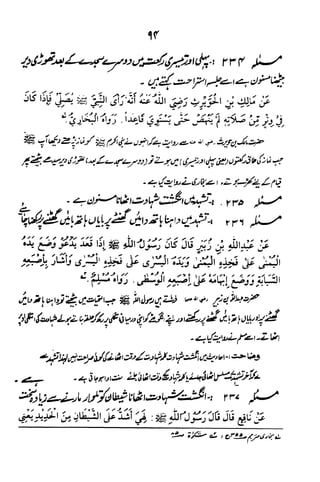 ۹۴
مسئلہ ۲۳۴ :- پہلی اور تیسری رکعت میں دوسرے سجدے کے بعد تھوڑی دیر
بیٹھنا مسنون ہے اسے جلسہ استراحت کہتے ہیں ۔
عَنْ مَالِكِ بْنِ الْحُوَيْرِثِ رَضِيَ اللهُ عَنْهُ أَنَّهُ رَأَى النَّبِيَّ ﷺ يُصَلِّي فَإِذَا كَانَ
فِي وِتْرٍ مِنْ صَلاَتِهِ لَمْ يَنْهَضْ حَتَّى يَسْتَوِيَ قَاعِدًا. رَوَاهُ الْبُخَارِيُّ
حضرت مالک بن حویرث رضی اللہ عنہ سے روایت ہے کہ انہوں نے نبی اکرم ﷺ کو نماز پڑھتے دیکھا آپ ﷺ
جب نماز کی طاق رکعتوں (یعنی پہلی اور تیسری) میں ہوتے تو (دوسرے سجدے کے بعد) تھوڑی دیر سیدھے بیٹھتے پھر
قیام کے لئے کھڑے ہوتے ، اسے بخاری نے روایت کیا ہے ۔
مسئلہ ۲۳۵ :- تشہد میں انگشت شہادت اٹھانا مسنون ہے ۔
مسئلہ ۲۳۶ :- تشہد میں داہنا ہاتھ دائیں گھٹنے پر بایاں ہاتھ بائیں گھٹنے پر رکھنا چاہئے
عَنْ عَبْدِاللهِ بْنِ زُبَيْرٍ قَالَ كَانَ رَسُوْلُ اللهِ ﷺ إِذَا قَعَدَ يَدْعُوْ وَضَعَ يَدَهُ
الْيُمْنٰى عَلٰى فَخِذِهِ الْيُمْنٰى وَيَدَهُ الْيُسْرٰى عَلٰى فَخِذِهِ الْيُسْرٰى وَأَشَارَ بِإِصْبَعِهِ
السَّبَّابَةِ وَوَضَعَ إِبْهَامَهُ عَلٰى إِصْبَعِهِ الْوُسْطٰى. رَوَاهُ مُسْلِمٌ
حضرت عبداللہ بن زبیر رضی اللہ عنہ فرماتے ہیں رسول اللہ ﷺ جب التحیات میں بیٹھتے تو داہنا ہاتھ دائیں
گھٹنے پر اور بایاں ہاتھ بائیں گھٹنے پر رکھتے اور اپنے انگوٹھے کو اپنی درمیانی انگلی پر رکھ کر حلقہ بناتے ہوئے شہادت کی انگلی اوپر
اٹھاتے ، اسے مسلم نے روایت کیا ہے ۔
وضاحت :- احادیث میں انگشت شہادت کو کلمہ شہادت کے وقت اٹھانے کی کوئی صراحت نہیں لہٰذا تشہد سے
مسئلہ ۲۳۷ :- انگشت شہادت اٹھانا شیطان کو تلوار مارنے سے زیادہ سخت ہے ۔
عَنْ نَافِعٍ قَالَ قَالَ رَسُوْلُ اللهِ ﷺ : لَهِيَ أَشَدُّ عَلَى الشَّيْطَانِ مِنَ الْحَدِيْدِ يَعْنِي